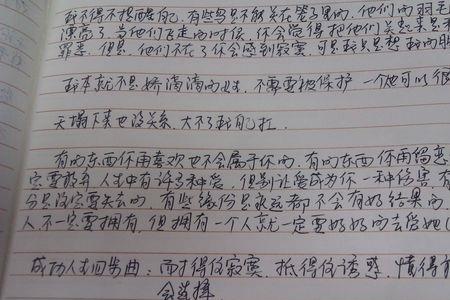 我不得不提醒自己,有些鸟是不能关在笼子里的,他们的羽毛
漂亮了,当他们飞走的时候,你会觉得把他们关起来是
罪恶,但是,他们不在了你会感到寂寞,可是我只是想我的朋
我本就不是娇滴滴的女,不需要被保护,一个她可以很
天塌下来也没关系,大不了我自己扛.
有的东西你再喜欢也不会属于你的,有的东西你再留恋
定要放弃,人生中有许多种爱,但别让爱成为你一种伤害,有
分是注定要失去的,有些缘份是永远都不会有好结果的,
人不一定要拥有,但拥有一个人就一定要好好的去爱她(
成功人生四步曲:耐得住寂寞,抵得住诱惑,懂得
会选择